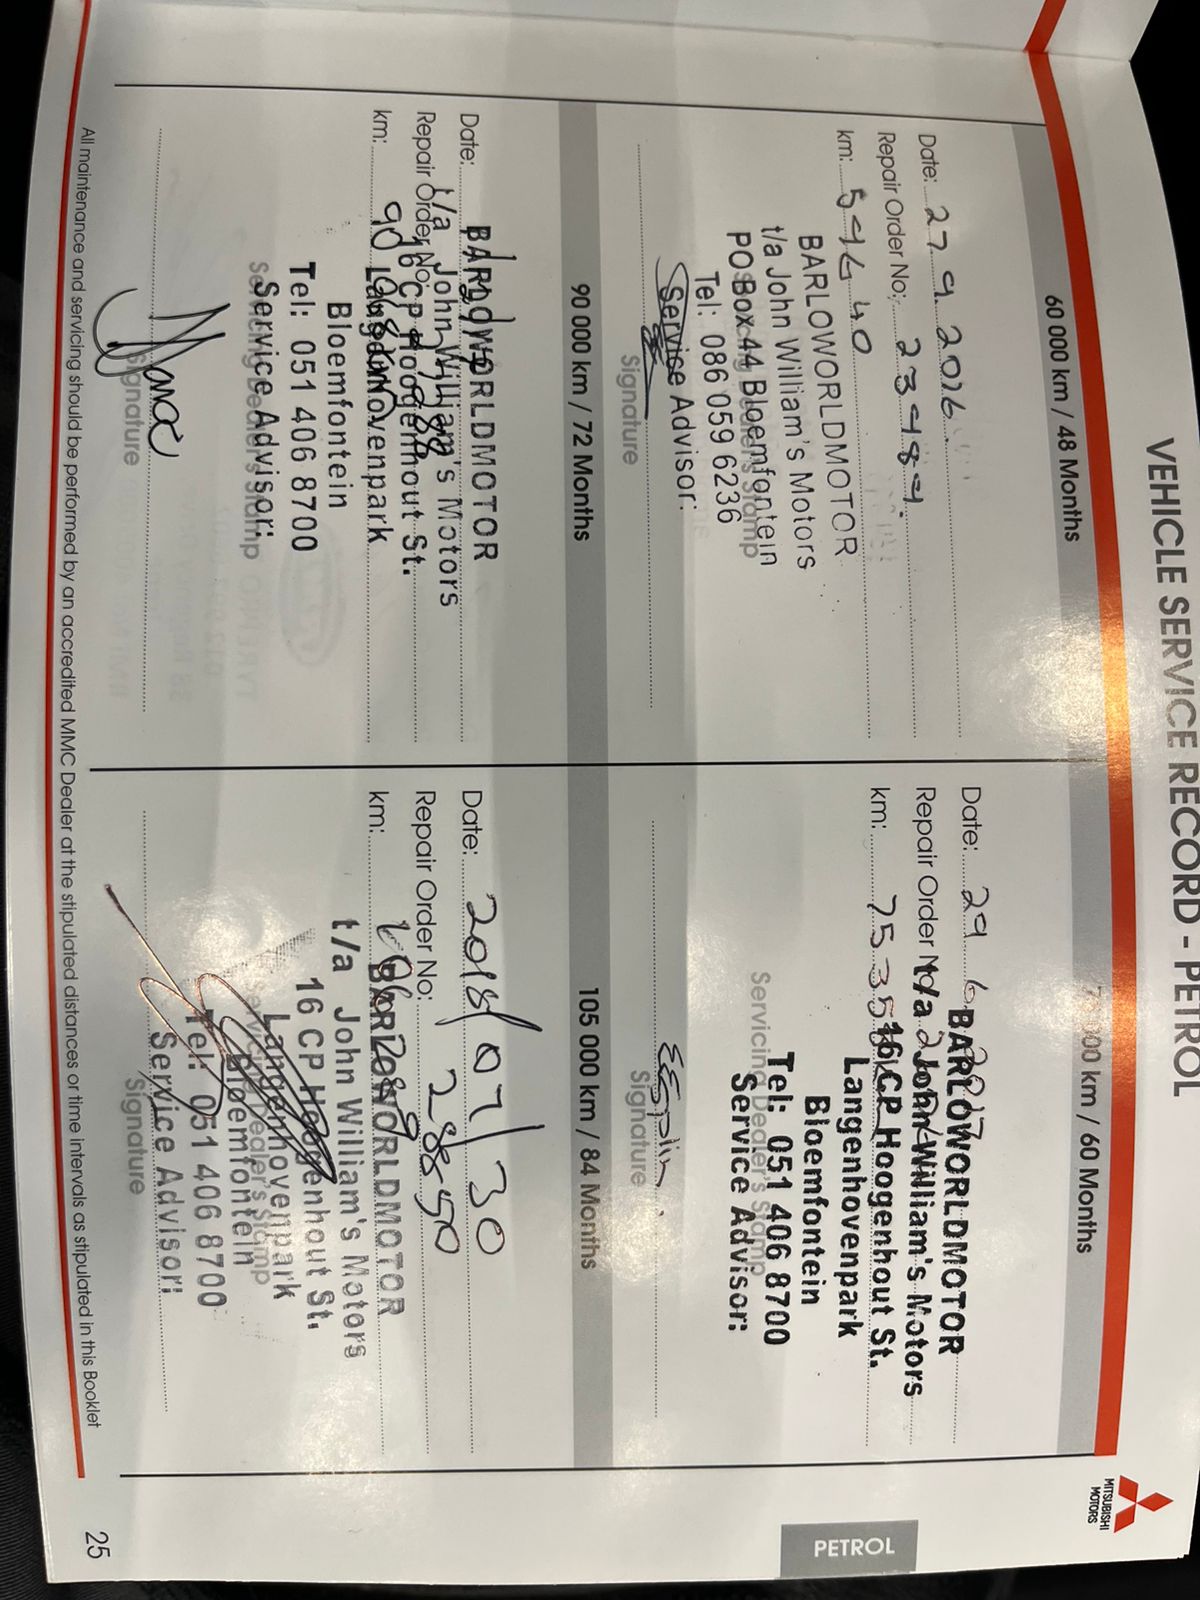 VEHICLE SERVICE RECORD - PETROL
MITSUBISHI
MOTORS
60 000 km / 48 Months
Date: 27 9 2016
Repair Order No: 23484.
km: 59640
BARLOWORLDMOTOR
t/a John William's Motors
PO Box 44 Bloemfontein
Tel: 086 059 6236
Service Advisor:
Signature
00 km / 60 Months
Date: 29 6
Repair Order No:
km: 75 35
BARLOWORLDMOTOR
t/a John William's Motors
16 CP Hoogenhout St.
Langenhovenpark
Bloemfontein
Tel: 051 406 8700
Servicing Dealer's Stamp
Service Advisor:
Signature
90 000 km / 72 Months
Date:
Repair Order No:
km: 90
BARLOWORLDMOTOR
t/a John William's Motors
16 CP Hoogenhout St.
Langenhovenpark
Bloemfontein
Tel: 051 406 8700
Servicing Dealer's Stamp
Service Advisor:
Signature
105 000 km / 84 Months
Date: 2018/07/30
Repair Order No: 28850
km:
BARLOWORLDMOTOR
t/a John William's Motors
16 CP Hoogenhout St.
Langenhovenpark
Bloemfontein
Servicing Dealer's Stamp
Tel: 051 406 8700
Service Advisor:
Signature
PETROL
All maintenance and servicing should be performed by an accredited MMC Dealer at the stipulated distances or time intervals as stipulated in this Booklet
25